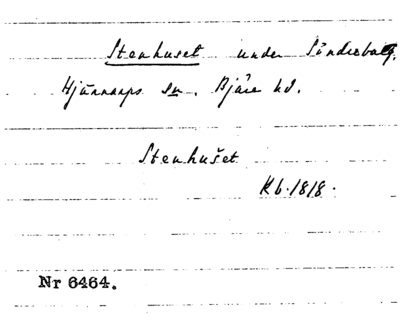 Stenhuset under Sönderbalg.
Hjärnarps sn. Bjäre hd.
Stenhuset
Kb. 1818.
Nr 6464.